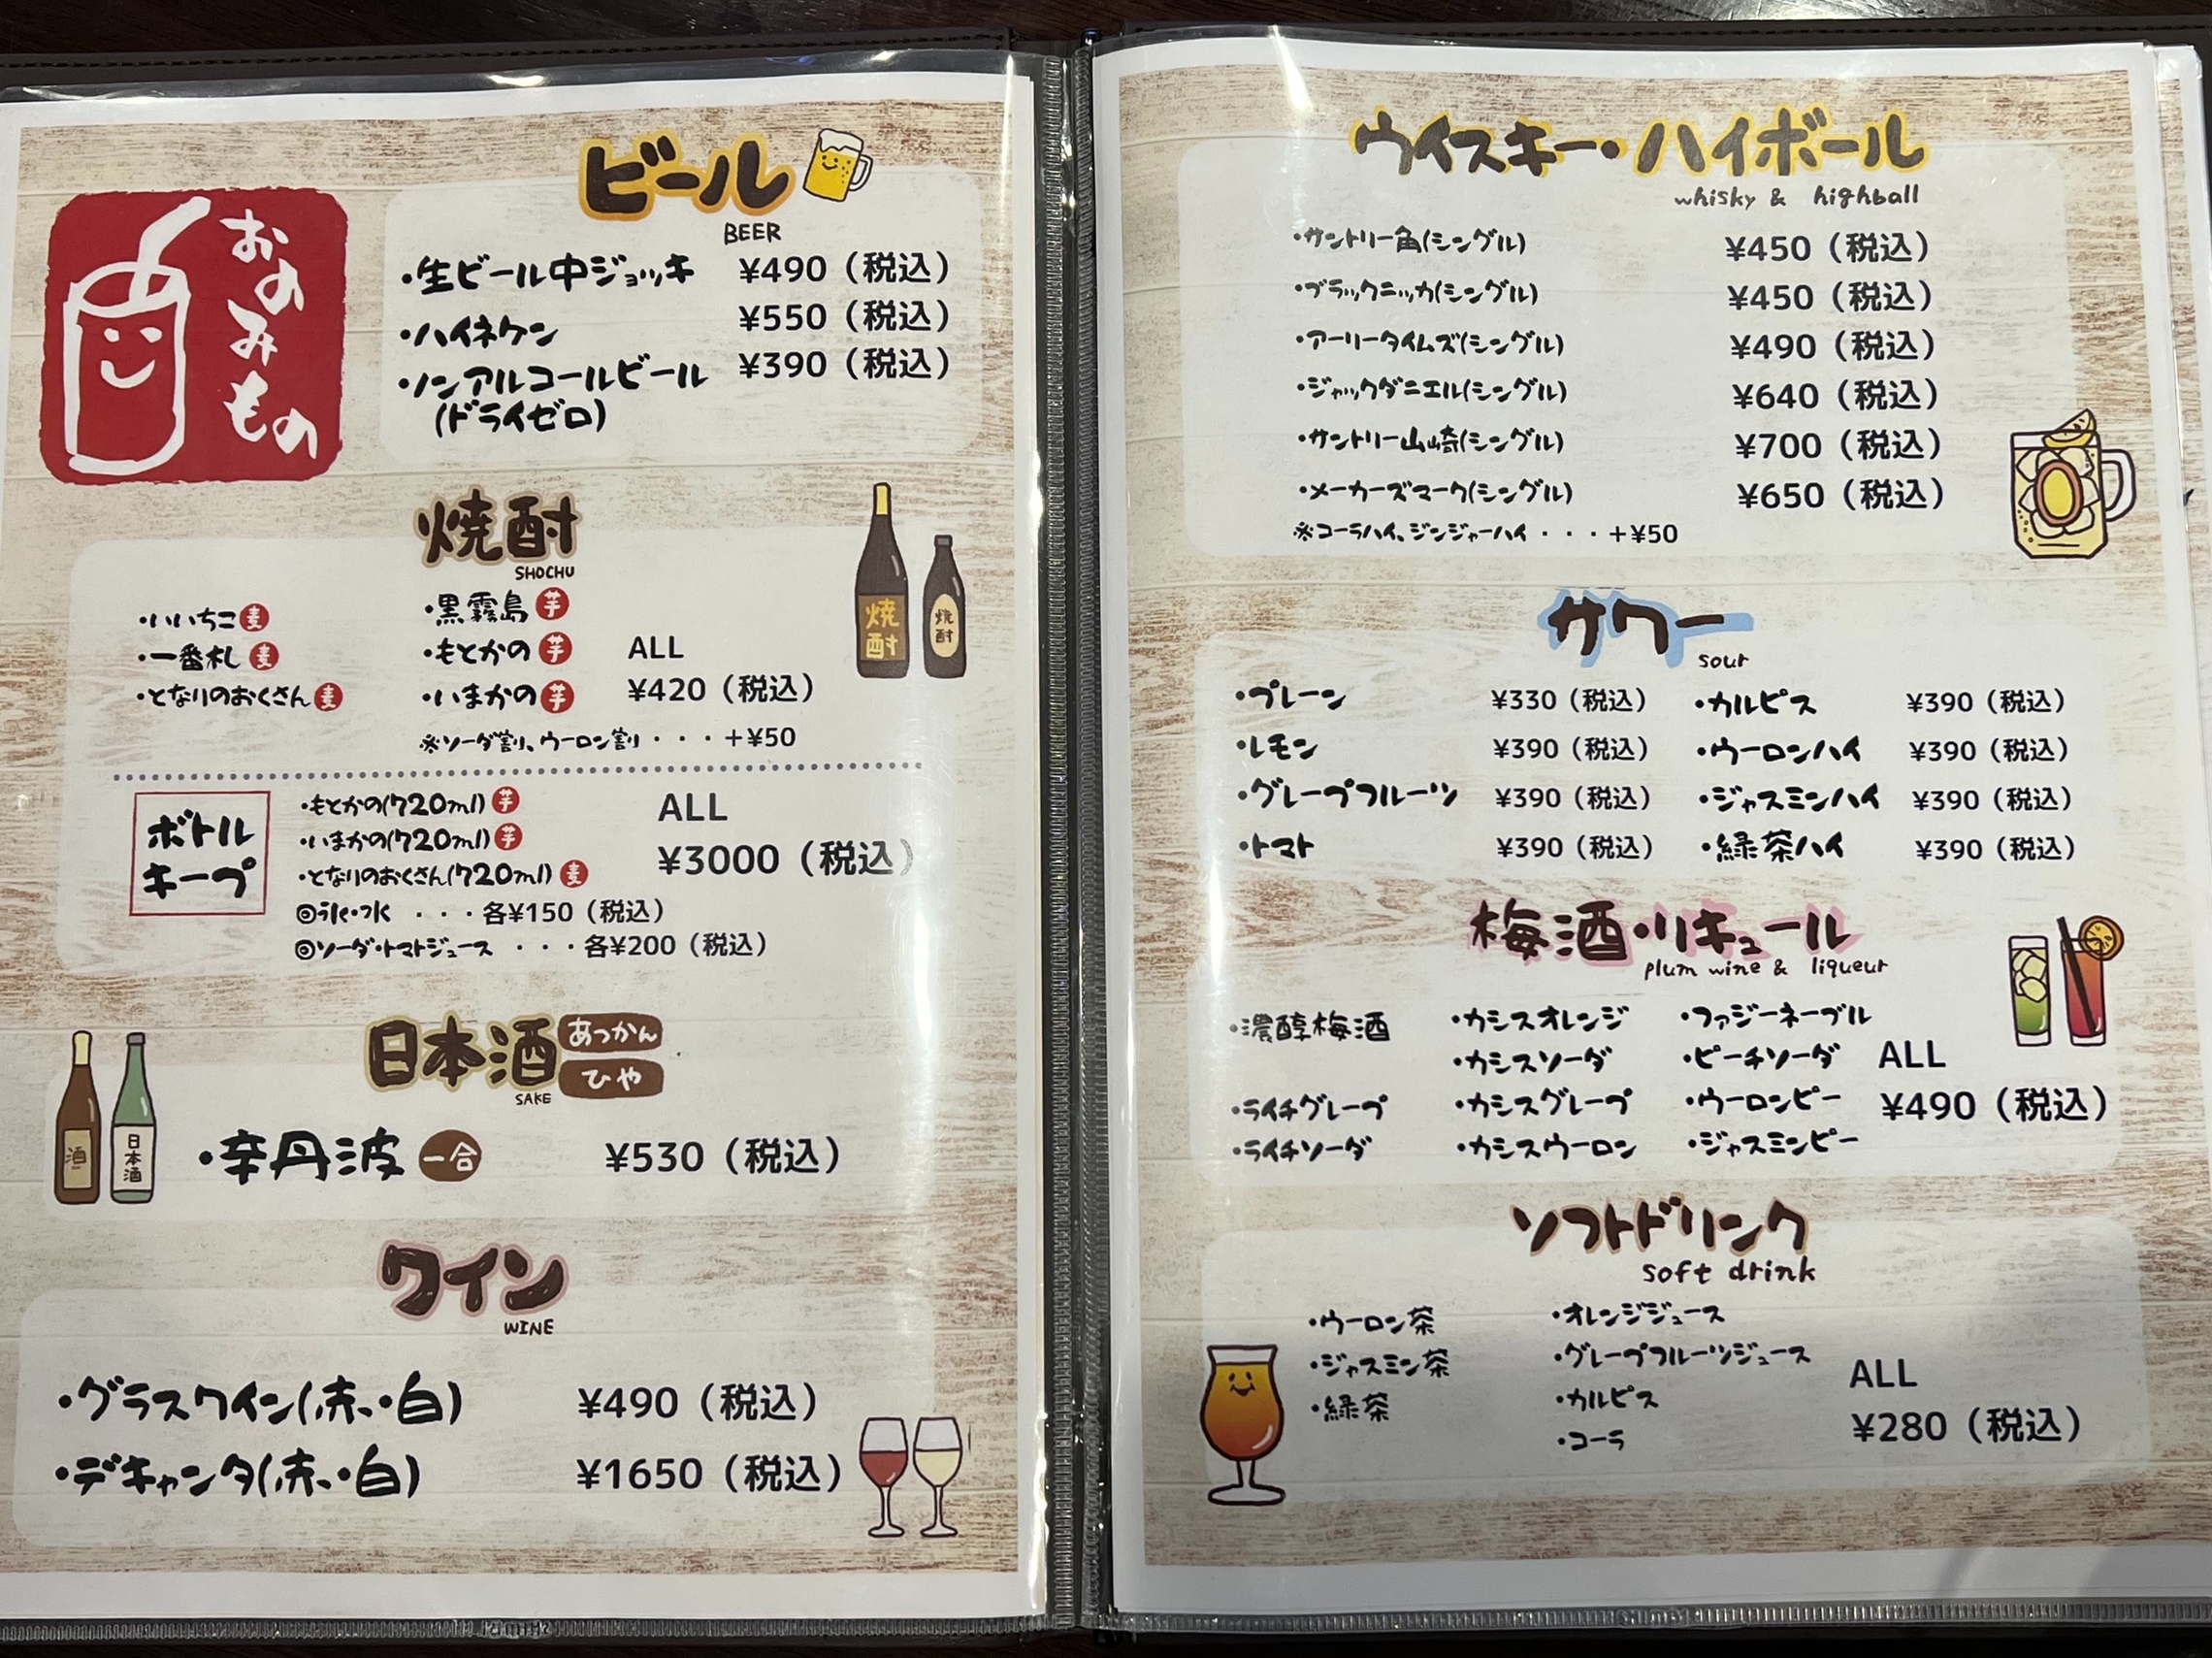 おのみもの
ビール
BEER
・生ビール中ジョッキ ¥490（税込）
・ハイネケン ¥550（税込）
・ノンアルコールビール ¥390（税込）
(ドライゼロ)
焼酎
SHOCHU
焼酎
焼酎
・いいちこ 麦
・一番札 麦
・となりのおくさん 麦
・黒霧島 芋
・もとかの 芋
・いまかの 芋
ALL
¥420（税込）
※ソーダ割り、ウーロン割り・・・+¥50
ボトル
キープ
・もとかの(720ml) 芋
・いまかの(720ml) 芋
・となりのおくさん(720ml) 麦
ALL
¥3000（税込）
◎氷・水 ・・・各¥150（税込）
◎ソーダ・トマトジュース ・・・各¥200（税込）
日本酒 あつかん
ひや
SAKE
酒
日本酒
・辛丹波 一合 ¥530（税込）
ワイン
WINE
・グラスワイン(赤・白) ¥490（税込）
・デキャンタ(赤・白) ¥1650（税込）
ウイスキー・ハイボール
whisky & highball
・サントリー角(シングル) ¥450（税込）
・ブラックニッカ(シングル) ¥450（税込）
・アーリータイムズ(シングル) ¥490（税込）
・ジャックダニエル(シングル) ¥640（税込）
・サントリー山崎(シングル) ¥700（税込）
・メーカーズマーク(シングル) ¥650（税込）
※コーラハイ、ジンジャーハイ・・・+¥50
サワー
sour
・プレーン ¥330（税込） ・カルピス ¥390（税込）
・レモン ¥390（税込） ・ウーロンハイ ¥390（税込）
・グレープフルーツ ¥390（税込） ・ジャスミンハイ ¥390（税込）
・トマト ¥390（税込） ・緑茶ハイ ¥390（税込）
梅酒・リキュール
plum wine & liqueur
・濃醇梅酒 ・カシスオレンジ ・ファジーネーブル
・カシスソーダ ・ピーチソーダ
・ライチグレープ ・カシスグレープ ・ウーロンピー
・ライチソーダ ・カシスウーロン ・ジャスミンピー
ALL
¥490（税込）
ソフトドリンク
soft drink
・ウーロン茶 ・オレンジジュース
・ジャスミン茶 ・グレープフルーツジュース
・緑茶 ・カルピス
・コーラ
ALL
¥280（税込）